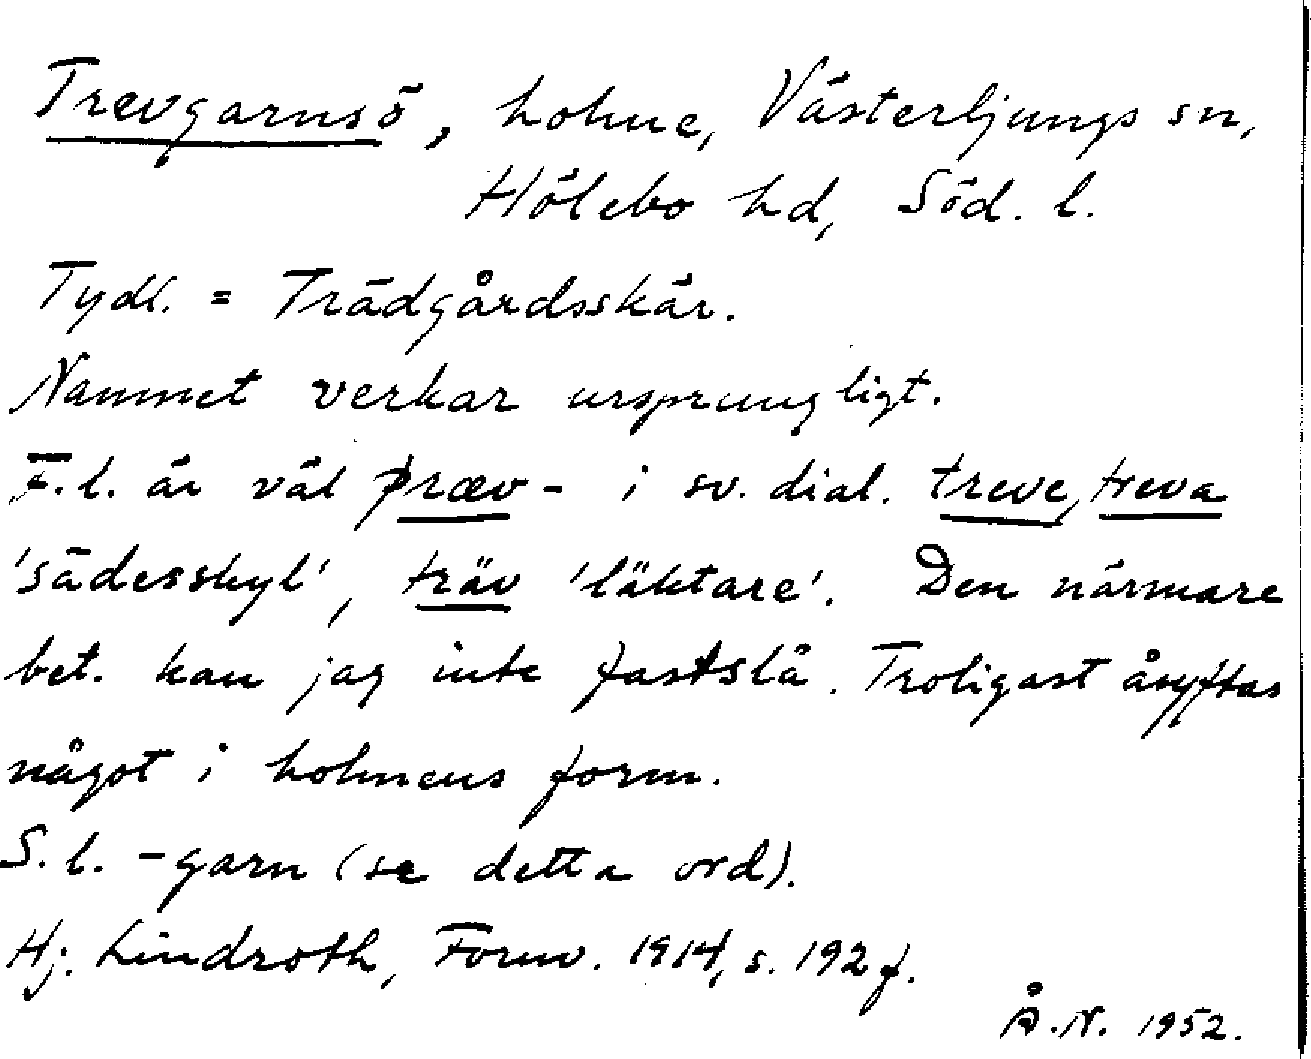 Trevgarnsö, holme, Västerljungs sn,
Hölebo hd, Söd. l.
Tydl. = Trädgårdsskär.
Namnet verkar ursprungligt.
F.l. är väl þræv- i sv. dial. treve, treva
'sädesskyl', träv 'läktare'. Den närmare
bet. kan jag inte fastslå. Troligast åsyftas
något i holmens form.
S.l. -garn (se detta ord).
Hj. Lindroth, Fornv. 1914, s. 192 f.
Å.N. 1952.